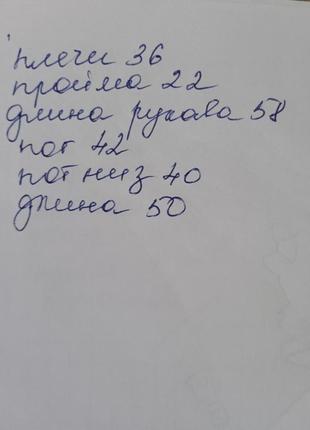 плечи 36
пройма 22
длина рукава 58
пог 42
пот низ 40
длина 50